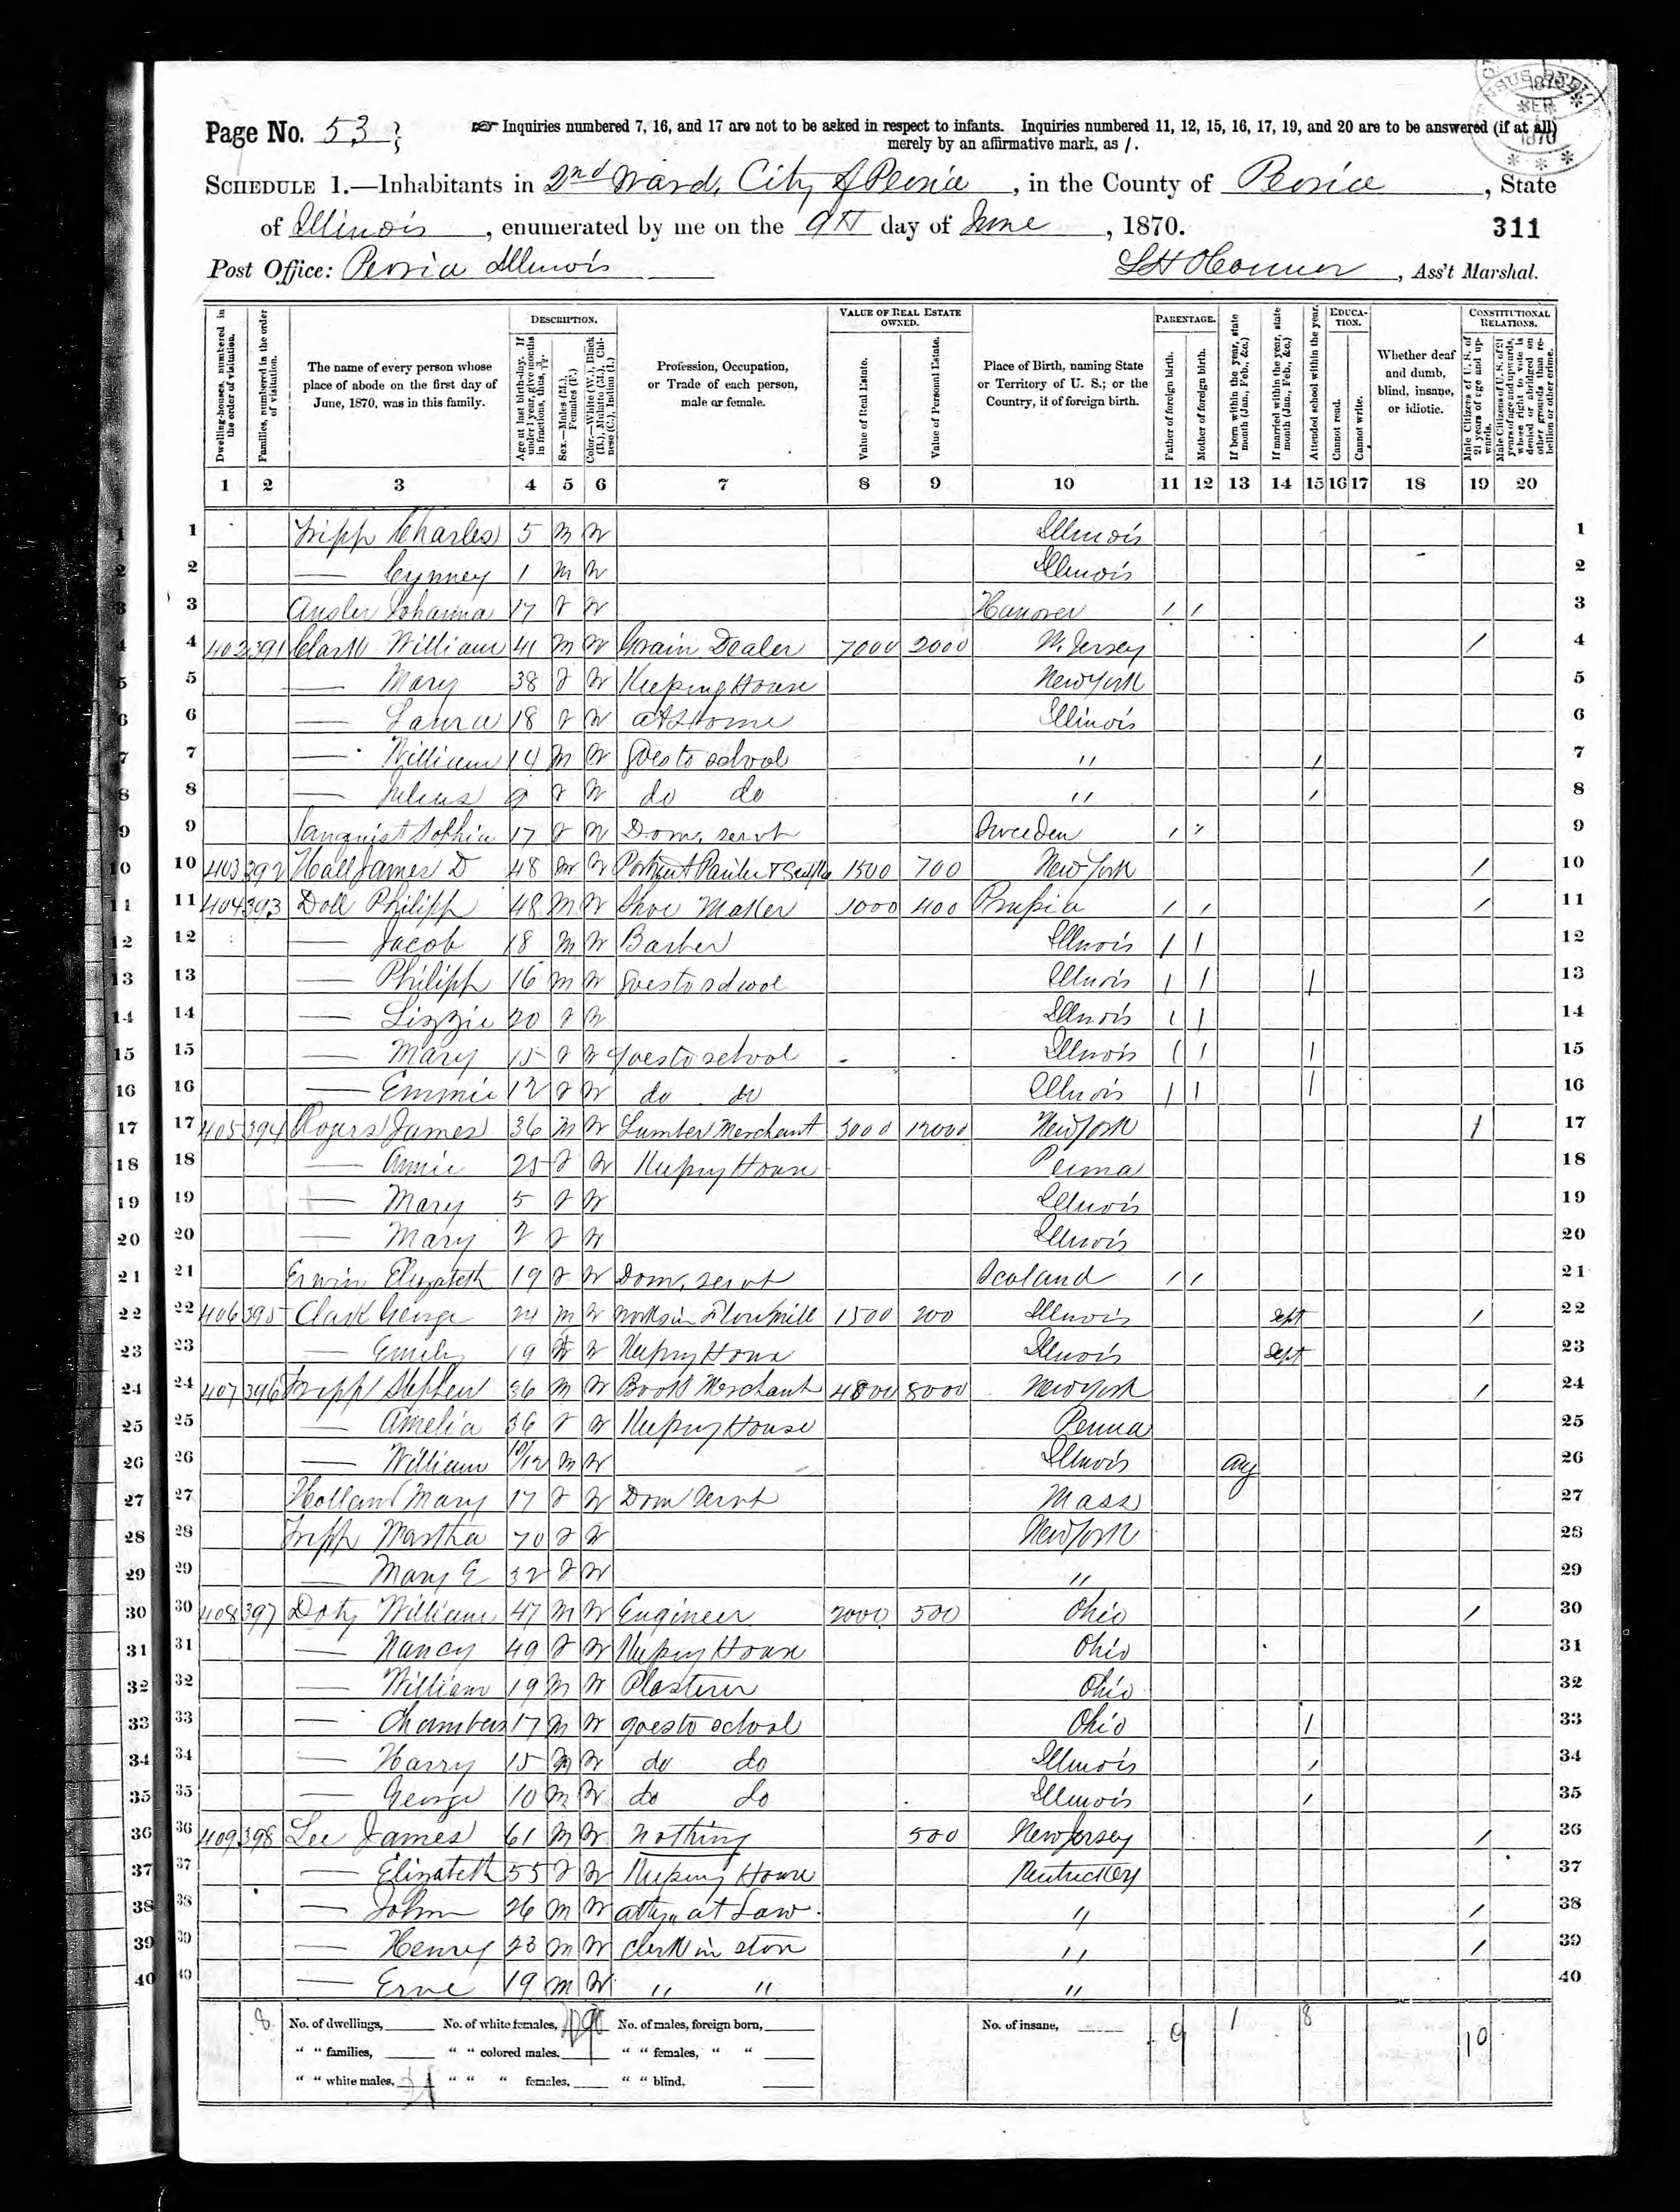 Page No. 53
Inquiries numbered 7, 16, and 17 are not to be asked in respect to infants. Inquiries numbered 11, 12, 15, 16, 17, 19, and 20 are to be answered (if at all)
merely by an affirmative mark, as /.
SCHEDULE 1.—Inhabitants in 2nd Ward, City of Peoria, in the County of Peoria, State
of Illinois, enumerated by me on the 9th day of June, 1870.
311
Post Office: Peoria Illinois
Ass't Marshal.
Dwelling-houses, numbered in the order of visitation.
Families, numbered in the order of visitation.
The name of every person whose place of abode on the first day of June, 1870, was in this family.
DESCRIPTION.
Age at last birth-day. If under 1 year, give months in fractions, thus, 3/12.
Sex.—Males (M.), Females (F.)
Color.—White (W.), Black (B.), Mulatto (M.), Chinese (C.), Indian (I.)
Profession, Occupation, or Trade of each person, male or female.
VALUE OF REAL ESTATE OWNED.
Value of Real Estate.
Value of Personal Estate.
Place of Birth, naming State or Territory of U. S.; or the Country, if of foreign birth.
PARENTAGE.
Father of foreign birth.
Mother of foreign birth.
If born within the year, state month (Jan., Feb., &c.)
If married within the year, state month (Jan., Feb., &c.)
Attended school within the year.
EDUCATION.
Cannot read.
Cannot write.
Whether deaf and dumb, blind, insane, or idiotic.
CONSTITUTIONAL RELATIONS.
Male Citizens of U. S. of 21 years of age and upwards.
Male Citizens of U. S. of 21 years of age and upwards, whose right to vote is denied or abridged on other grounds than rebellion or other crime.
1 2 3 4 5 6 7 8 9 10 11 12 13 14 15 16 17 18 19 20
1 Tripp Charles 5 M W Illinois 1
2 — 1 M W Illinois 2
3 Johanna 17 F W Hanover / / 3
4 402 391 Clark William 41 M W Grain Dealer 7000 2000 N. Jersey / 4
5 — Mary 38 F W Keeping House New York 5
6 — Laura 18 F W at Home Illinois 6
7 — William 14 M W Goes to school " / 7
8 — Julius 9 F W do do " / 8
9 Sophia 17 F W Dom. servt Sweeden / " 9
10 403 392 Hall James D 48 M W 1500 700 New York / 10
11 404 393 Doll Philipp 48 M W Shoe Maker 1000 400 Prussia / / / 11
12 — Jacob 18 M W Barber Illinois / / 12
13 — Philipp 16 M W Goes to school Illinois / / / 13
14 — Lizzie 20 F W Illinois / / 14
15 — Mary 15 F W Goes to school Illinois / / / 15
16 — Emmie 12 F W do do Illinois / / / 16
17 405 394 Rogers James 36 M W Lumber Merchant 3000 12000 New York / 17
18 — Annie 25 F W Keeping House Penna 18
19 — Mary 5 F W Illinois 19
20 — Mary 2 F W Illinois 20
21 Erwin Elizabeth 19 F W Dom. servt Scoland / / 21
22 406 395 Clark George 24 M W works in Flour Mill 1500 200 Illinois Sept / 22
23 — Emily 19 F W Keeping House Illinois Sept 23
24 407 396 Tripp Stephen 36 M W Book Merchant 4800 8000 New York / 24
25 — Amelia 36 F W Keeping House Penna 25
26 — William 10/12 M W Illinois Aug 26
27 Holland Mary 17 F W Dom Servt Mass 27
28 Tripp Martha 70 F W New York 28
29 — Mary E 32 F W " 29
30 408 397 Doty William 47 M W Engineer 2000 500 Ohio / 30
31 — Nancy 49 F W Keeping House Ohio 31
32 — William 19 M W Plasterer Ohio 32
33 — Chambers 17 M W goes to school Ohio / 33
34 — Harry 15 M W do do Illinois / 34
35 — George 10 M W do do Illinois / 35
36 409 398 Lee James 61 M W nothing 500 New Jersey / 36
37 — Elizabeth 55 F W Keeping House Kentuckey 37
38 — John 26 M W atty. at Law " / 38
39 — Henry 23 M W clerk in store " / 39
40 — 19 M W " " " 40
8 No. of dwellings, No. of white females, No. of males, foreign born, No. of insane, 9 1 8 10
" " families, " " colored males, " " females, " "
" " white males, " " " females, " " blind,